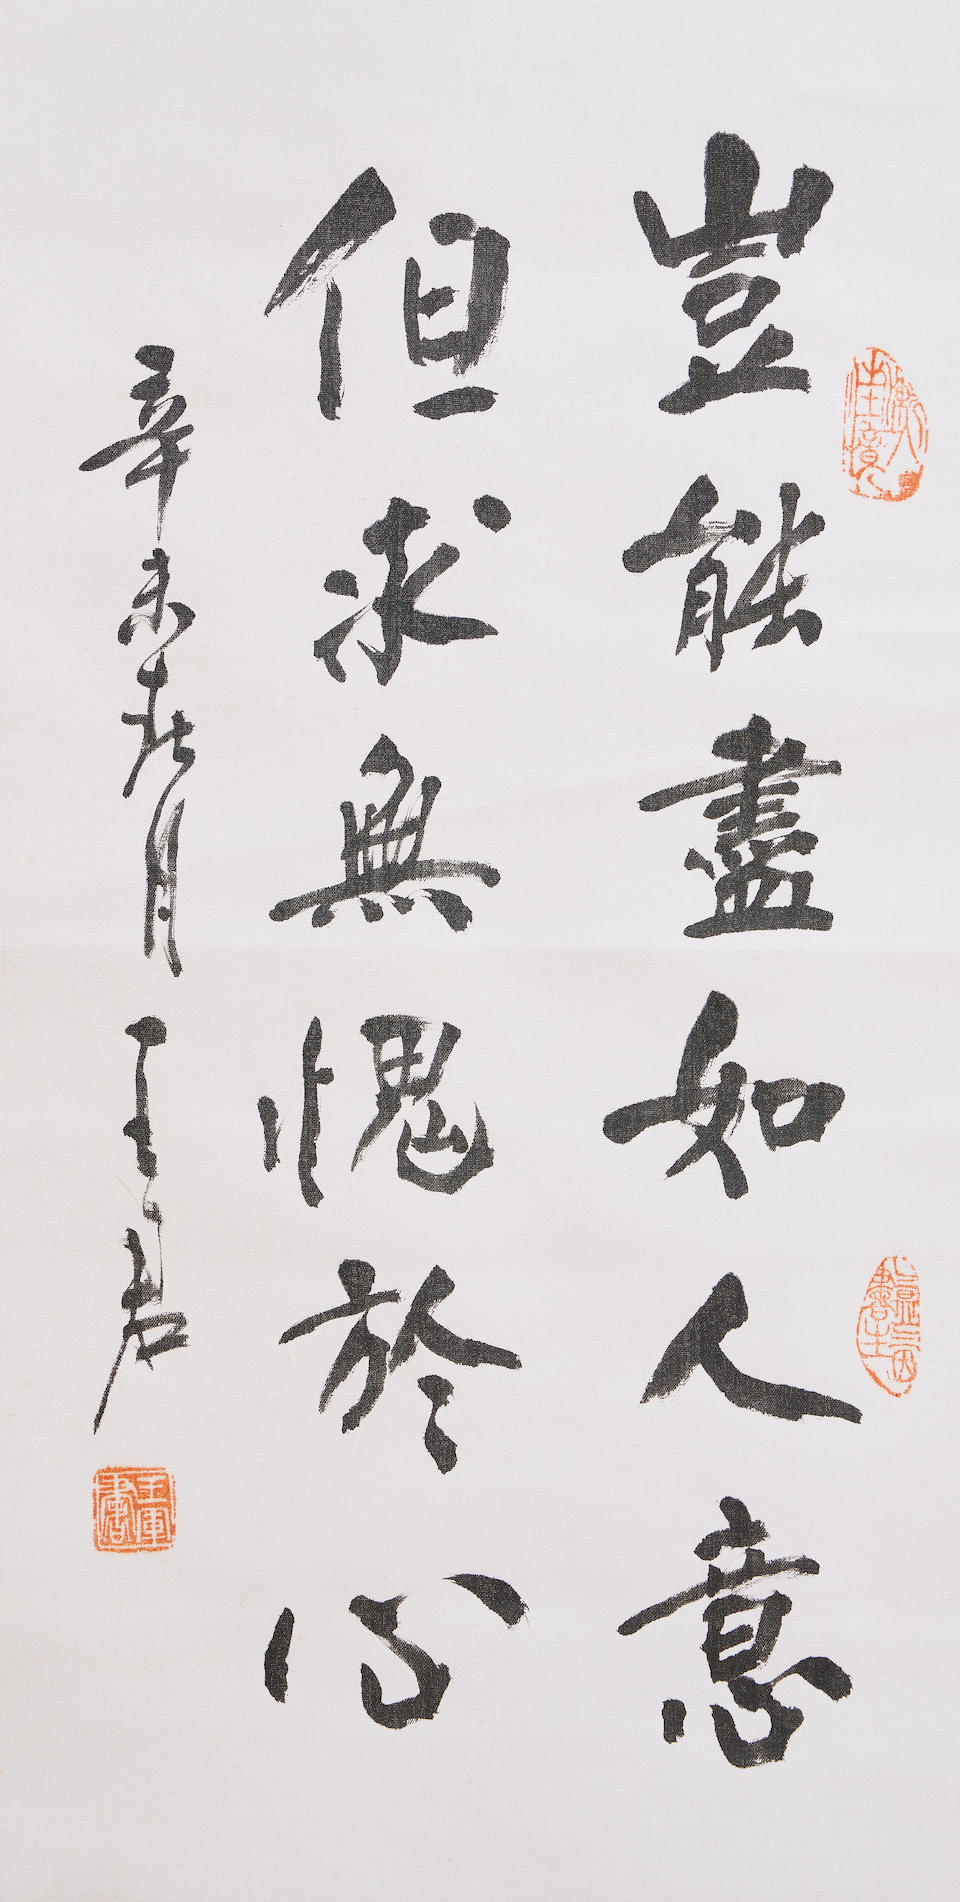 豈能盡如人意
但求無愧於心
辛未春月